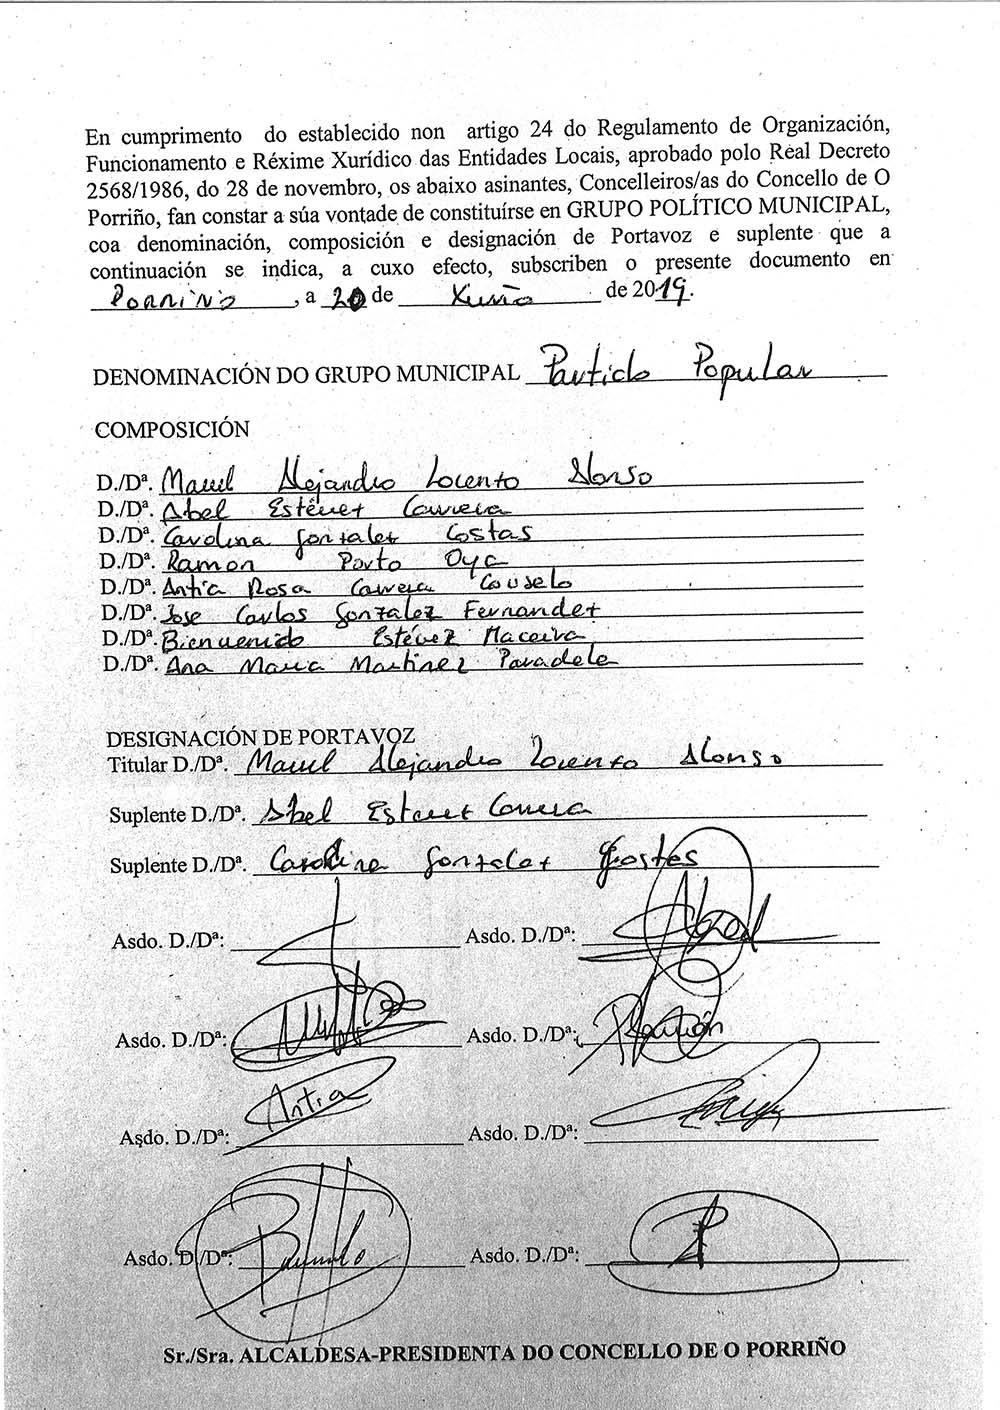 En cumprimento do establecido non artigo 24 do Regulamento de Organización,
Funcionamento e Réxime Xurídico das Entidades Locais, aprobado polo Real Decreto
2568/1986, do 28 de novembro, os abaixo asinantes, Concelleiros/as do Concello de O
Porriño, fan constar a súa vontade de constituírse en GRUPO POLÍTICO MUNICIPAL,
coa denominación, composición e designación de Portavoz e suplente que a
continuación se indica, a cuxo efecto, subscriben o presente documento en
Porriño, a 20 de Xuño de 2019.
DENOMINACIÓN DO GRUPO MUNICIPAL Partido Popular
COMPOSICIÓN
D./Dª. Manuel Alejandro Lorenzo Alonso
D./Dª. Abel Estévez Carrera
D./Dª. Carolina Gonzalez Costas
D./Dª. Ramon Porto Oya
D./Dª. Antía Rosa Carrera Couselo
D./Dª. Jose Carlos Gonzalez Fernandez
D./Dª. Bienvenido Estévez Maceira
D./Dª. Ana Maria Martinez Paradela
DESIGNACIÓN DE PORTAVOZ
Titular D./Dª. Manuel Alejandro Lorenzo Alonso
Suplente D./Dª. Abel Estevez Carrera
Suplente D./Dª. Carolina Gonzalez Costas
Asdo. D./Dª: Asdo. D./Dª:
Asdo. D./Dª: Asdo. D./Dª: Ramón
Asdo. D./Dª: Antia Asdo. D./Dª:
Asdo. D./Dª: Asdo. D./Dª:
Sr./Sra. ALCALDESA-PRESIDENTA DO CONCELLO DE O PORRIÑO